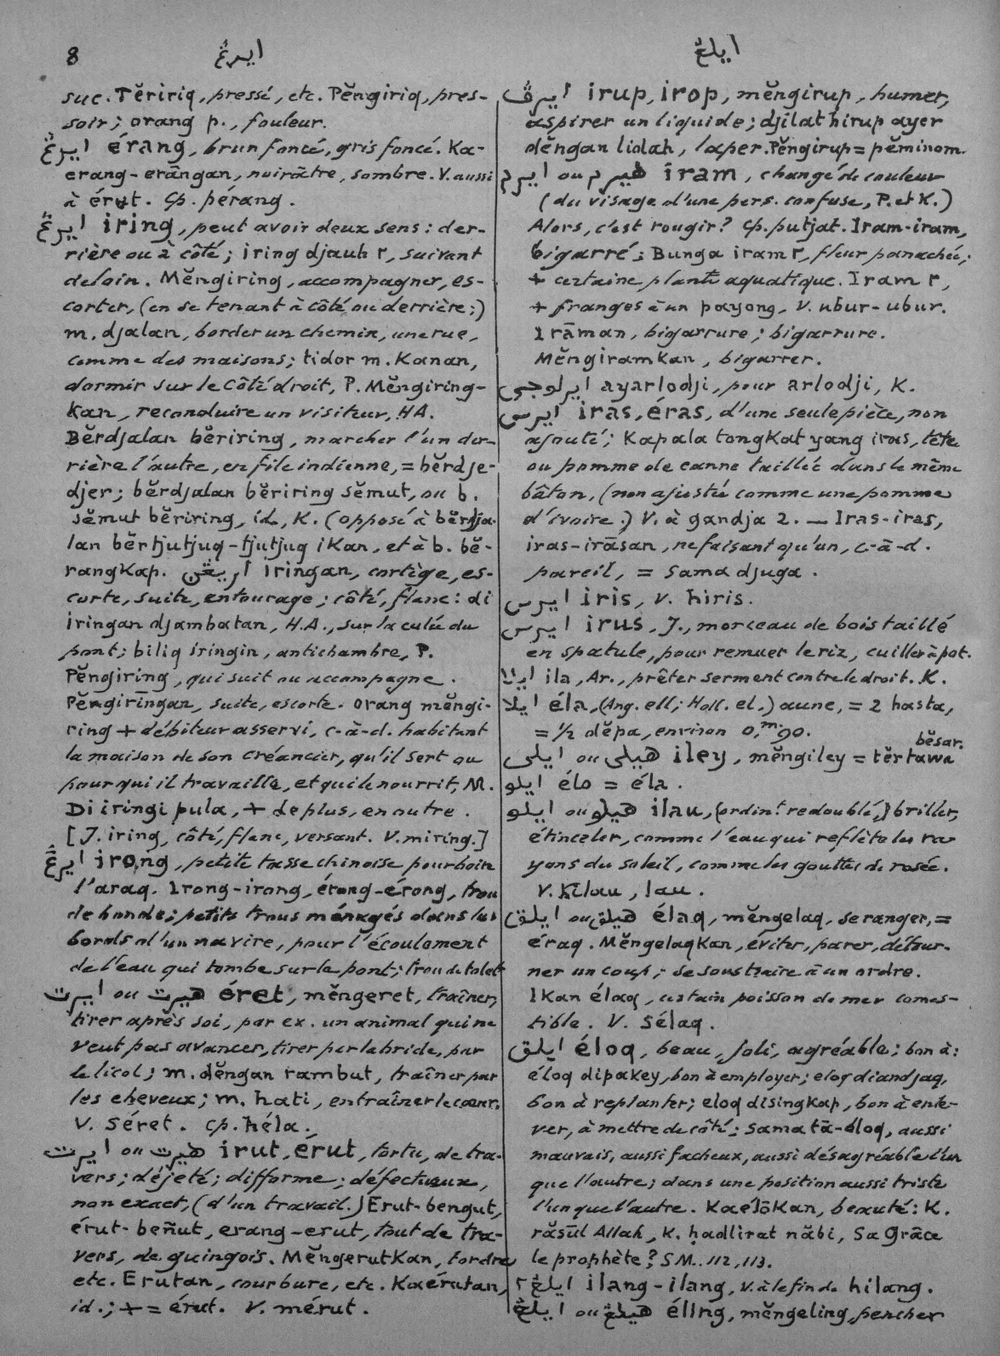 8 ايرڠ ايلڠ
suc. Tĕririq, pressé, etc. Pĕngiriq, pres-
soir; orang p., fouleur.
ايرڠ érang, brun foncé, gris foncé. Ka-
erang-erāngan, noirâtre, sombre. V. aussi
à érut. Cp. pérang.
ايرڠ iring, peut avoir deux sens: der-
rière ou à côté; iring djauh r, suivant
de loin. Mĕngiring, accompagner, es-
corter, (en se tenant à côté ou derrière;)
m. djalan, border un chemin, une rue,
comme des maisons; tidor m. Kanan,
dormir sur le côté droit, P. Mĕngiring-
kan, reconduire un visiteur, HA.
Bĕrdjalan bĕriring, marcher l'un der-
rière l'autre, en file indienne, = bĕrdje-
djer; bĕrdjalan bĕriring sĕmut, ou b.
sĕmut bĕriring, id., K. (opposé à bĕrdja-
lan bĕrtjutjuq-tjutjuq ikan, et à b. bĕ-
rangkap. ايريڠن iringan, cortège, es-
corte, suite, entourage; côté, flanc: di
iringan djambatan, H.A., sur la culée du
pont; biliq iringin, antichambre, P.
Pĕngiring, qui suit ou accompagne.
Pĕngirīngan, suite, escorte. Orang mĕngi-
ring + débiteur asservi, c-à-d. habitant
la maison de son créancier, qu'il sert ou
pour qui il travaille, et qui le nourrit, M.
Di iringi pula, + de plus, en outre.
[J. iring, côté, flanc, versant. V. miring.]
ايرڠ irong, petite tasse chinoise pour boire
l'araq. Irong-irong, érong-érong, trou
de bonde; petits trous ménagés dans les
bords d'un navire, pour l'écoulement
de l'eau qui tombe sur le pont; trou de tolet
ايرت ou هيرت éret, mĕngeret, traîner,
tirer après soi, par ex. un animal qui ne
veut pas avancer, tirer par la bride, par
le licol; m. dĕngan rambut, traîner par
les cheveux; m. hati, entraîner le cœur.
V. séret. Cp. héla.
ايرت ou هيرت irut, érut, tortu, de tra-
vers; déjeté; difforme; défectueux,
non exact, (d'un travail.) Erut-bengut,
érut-beñut, erang-erut, tout de tra-
vers, de guingois. Mĕngerutkan, tordre
etc. Erutan, courbure, etc. Kaérutan,
id.; + = érut. V. mérut.
ايرڤ irup, irop, mĕngirup, humer,
aspirer un liquide; djilat hirup ayer
dĕngan lidah, laper. Pĕngirup = pĕminom.
ايرم ou هيرم iram, changé de couleur
(du visage d'une pers. confuse, P. et K.)
Alors, c'est rougir? Cp. putjat. Iram-iram,
bigarré; Bunga iram r, fleur panachée;
+ certaine plante aquatique. Iram r,
+ franges à un payong. V. ubur-ubur.
Irāman, bigarrure; bigarrure.
Mĕngiramkan, bigarrer.
ايرلوجي ayarlodji, pour arlodji, K.
ايرس iras, éras, d'une seule pièce, non
ajouté; Kapala tongkat yang iras, tête
ou pomme de canne taillée dans le même
bâton, (non ajustée comme une pomme
d'ivoire.) V. à gandja 2. — Iras-iras,
iras-irāsan, ne faisant qu'un, c-à-d.
pareil, = sama djuga.
ايرس iris, V. hiris.
ايرس irus, J., morceau de bois taillé
en spatule, pour remuer le riz, cuiller à pot.
ايلا ila, Ar., prêter serment contre le droit. K.
ايلا éla, (Ang. ell; Holl. el.) aune, = 2 hasta,
= ½ dĕpa, environ 0,ᵐ90.
ايلي ou هيلي iley, mĕngiley = tĕrtawa bĕsar.
ايلو élo = éla.
ايلو ou هيلو ilau, (ordinᵗ redoublé,) briller,
étinceler, comme l'eau qui reflète les ra-
yons du soleil, comme les gouttes de rosée.
V. Kilau, lau.
ايلق ou هيلق élaq, mĕngelaq, se ranger, =
éraq. Mĕngelaqkan, éviter, parer, détour-
ner un coup; se soustraire à un ordre.
Ikan élaq, certain poisson de mer comes-
tible. V. Sélaq.
ايلق éloq, beau, joli, agréable; bon à:
éloq dipakey, bon à employer; eloq diandjaq,
bon à replanter; eloq disingkap, bon à enle-
ver, à mettre de côté; sama tā-éloq, aussi
mauvais, aussi fâcheux, aussi désagréable l'un
que l'autre; dans une position aussi triste
l'un que l'autre. Kaelōkan, beauté: K.
rāsūl Allah, K. hadlirat nābi, Sa Grâce
le prophète? S.M. 112, 113.
ايلڠ ٢ ilang-ilang, V. à la fin de hilang.
ايلڠ ou هيلڠ éling, mĕngeling, pencher